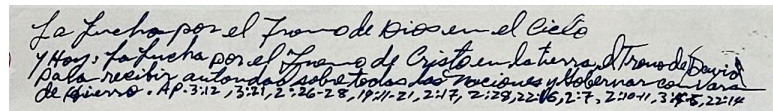 La Lucha por el Trono de Dios en el Cielo
y Hoy: La Lucha por el Trono de Cristo en la tierra, el Trono de David
Para recibir autoridad sobre todas las Naciones y Gobernar con Vara
de Hierro. AP. 3:12, 3:21, 2:26-28, 19:11-21, 2:17, 2:28, 22:16, 2:7, 2:10-11, 3:4-5, 22:14